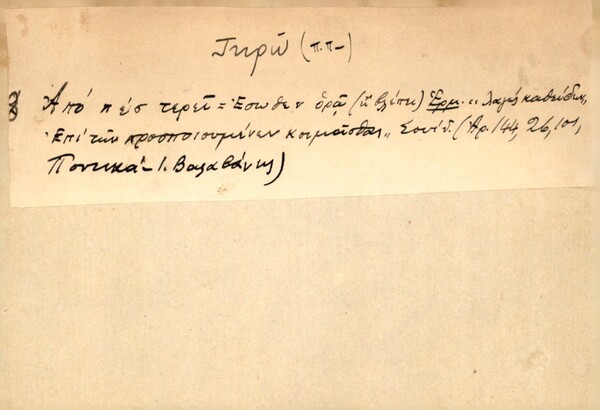 Τηρῶ (π.π-)
Ἀπό πέσ τερεῖ = Ἔσωθεν ὁρᾷ (ἢ βλέπει) Ἑρμ. „ Λαγὼς καθεύδων,
Ἐπί τῶν προσποιουμένων κοιμᾶσθαι „ Σουίδ. (Ἀρ. 144, 26, 101,
Ποντικά - Ι. Βαλαβάνης)